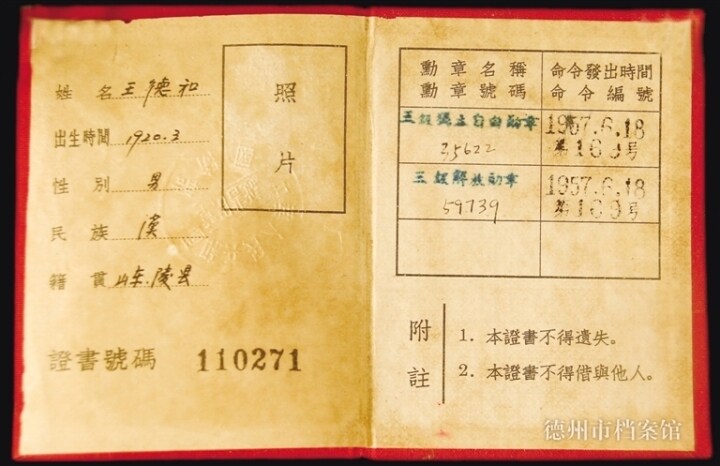 姓名 王德和
出生時間 1920.3
性別 男
民族 漢
籍貫 山东.陵县
證書號碼 110271
照
片
勳章名稱
勳章號碼
命令發出時間
命令編號
三级獨立自由勳章
35622
1957.6.18
第169号
三级解放勳章
59739
1957.6.18
第169号
附註
1. 本證書不得遺失。
2. 本證書不得借與他人。
德州市档案馆